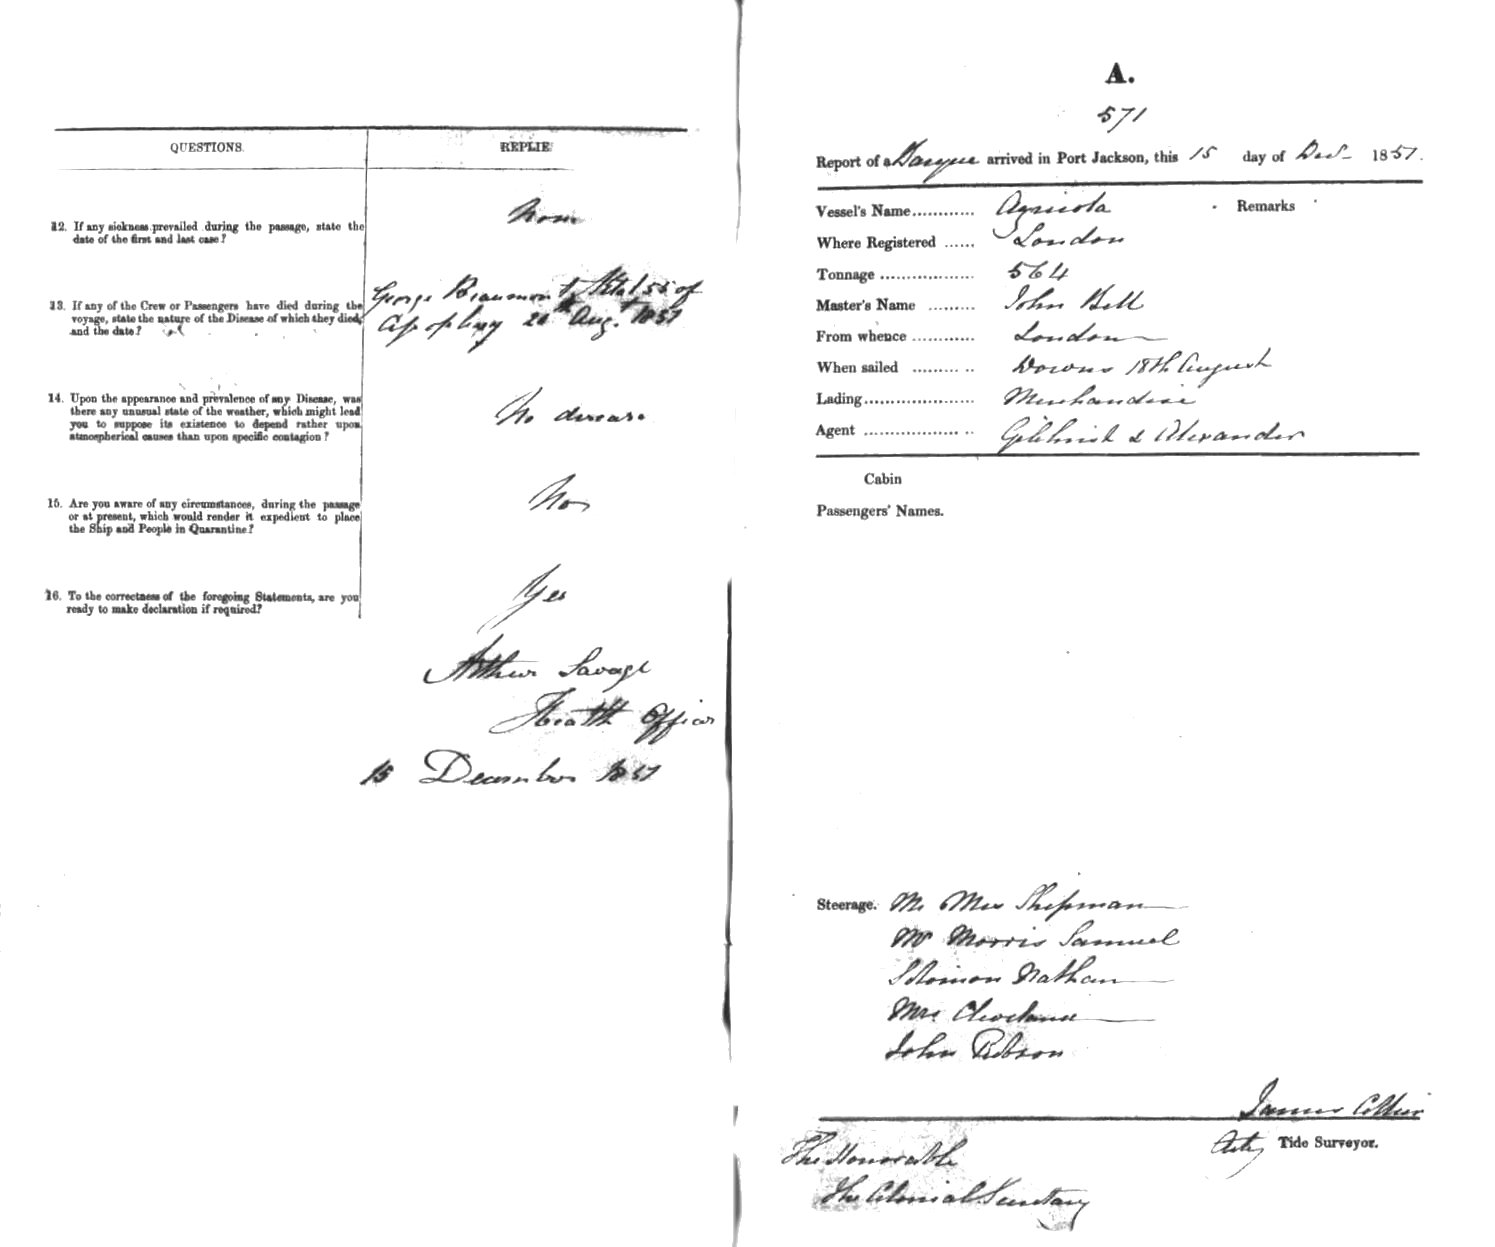 QUESTIONS.
REPLIE
12. If any sickness prevailed during the passage, state the
date of the first and last case?
None
13. If any of the Crew or Passengers have died during the
voyage, state the nature of the Disease of which they died,
and the date?
George Beaumont Ætat 55 of
Apoplexy 20th Augt 1851
14. Upon the appearance and prevalence of any Disease, was
there any unusual state of the weather, which might lead
you to suppose its existence to depend rather upon
atmospherical causes than upon specific contagion?
No disease
15. Are you aware of any circumstances, during the passage
or at present, which would render it expedient to place
the Ship and People in Quarantine?
No
16. To the correctness of the foregoing Statements, are you
ready to make declaration if required?
Yes
Arthur Savage
Health Officer
15 December 1851
A.
571
Report of a Barque arrived in Port Jackson, this 15 day of Decr 1851.
Vessel's Name............ Agricola
Remarks
Where Registered ...... London
Tonnage .................. 564
Master's Name ......... John Bell
From whence ............ London
When sailed ......... .. Downs 18th August
Lading..................... Merchandise
Agent .................. .. Gilchrist & Alexander
Cabin
Passengers' Names.
Steerage. Mr Mrs Shipman
Mr Morris Samuel
Solomon Nathan
Mrs Cleveland
John Robson
James Collier
Actg Tide Surveyor.
The Honorable
The Colonial Secretary